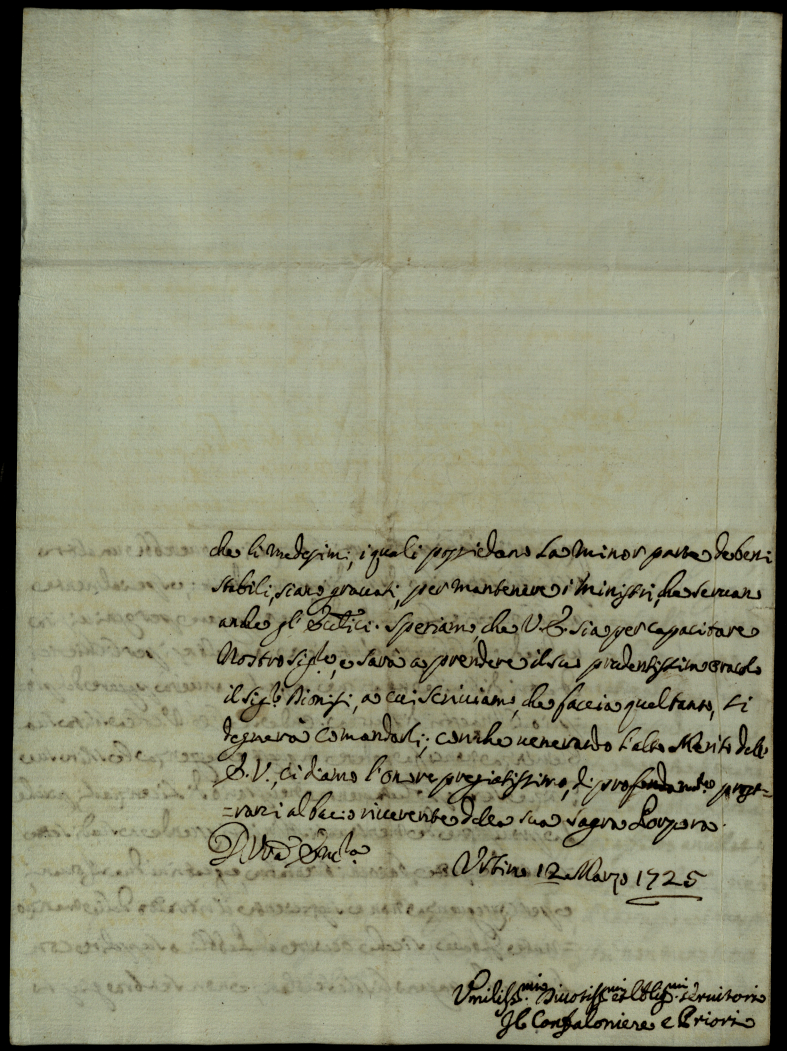 che li medesimi, i quali possiedono la minor parte de beni
stabili, siano gravati, per mantenere i Ministri, che servano
anche gl' Eccl.ici. Speriamo che V. E. sia per capacitare
Nostro Sig.re, e sarà a prendere il suo prudentissimo oracolo
il Sig.r Dionisi, a cui scriviamo, che faccia quel tanto, si
degnerà comandarli; con che venerando l'alto Merito dell'
E. V., ci diamo l'onore pregiatissimo, di profondam.te prost=
=rarci al bacio riverente della sua Sagra Porpora.
Di Vra
Urbino 12 Marzo 1725
Umiliss.mi Divotiss.mi et Oblig.mi Servitori
Il Confaloniere e Priori